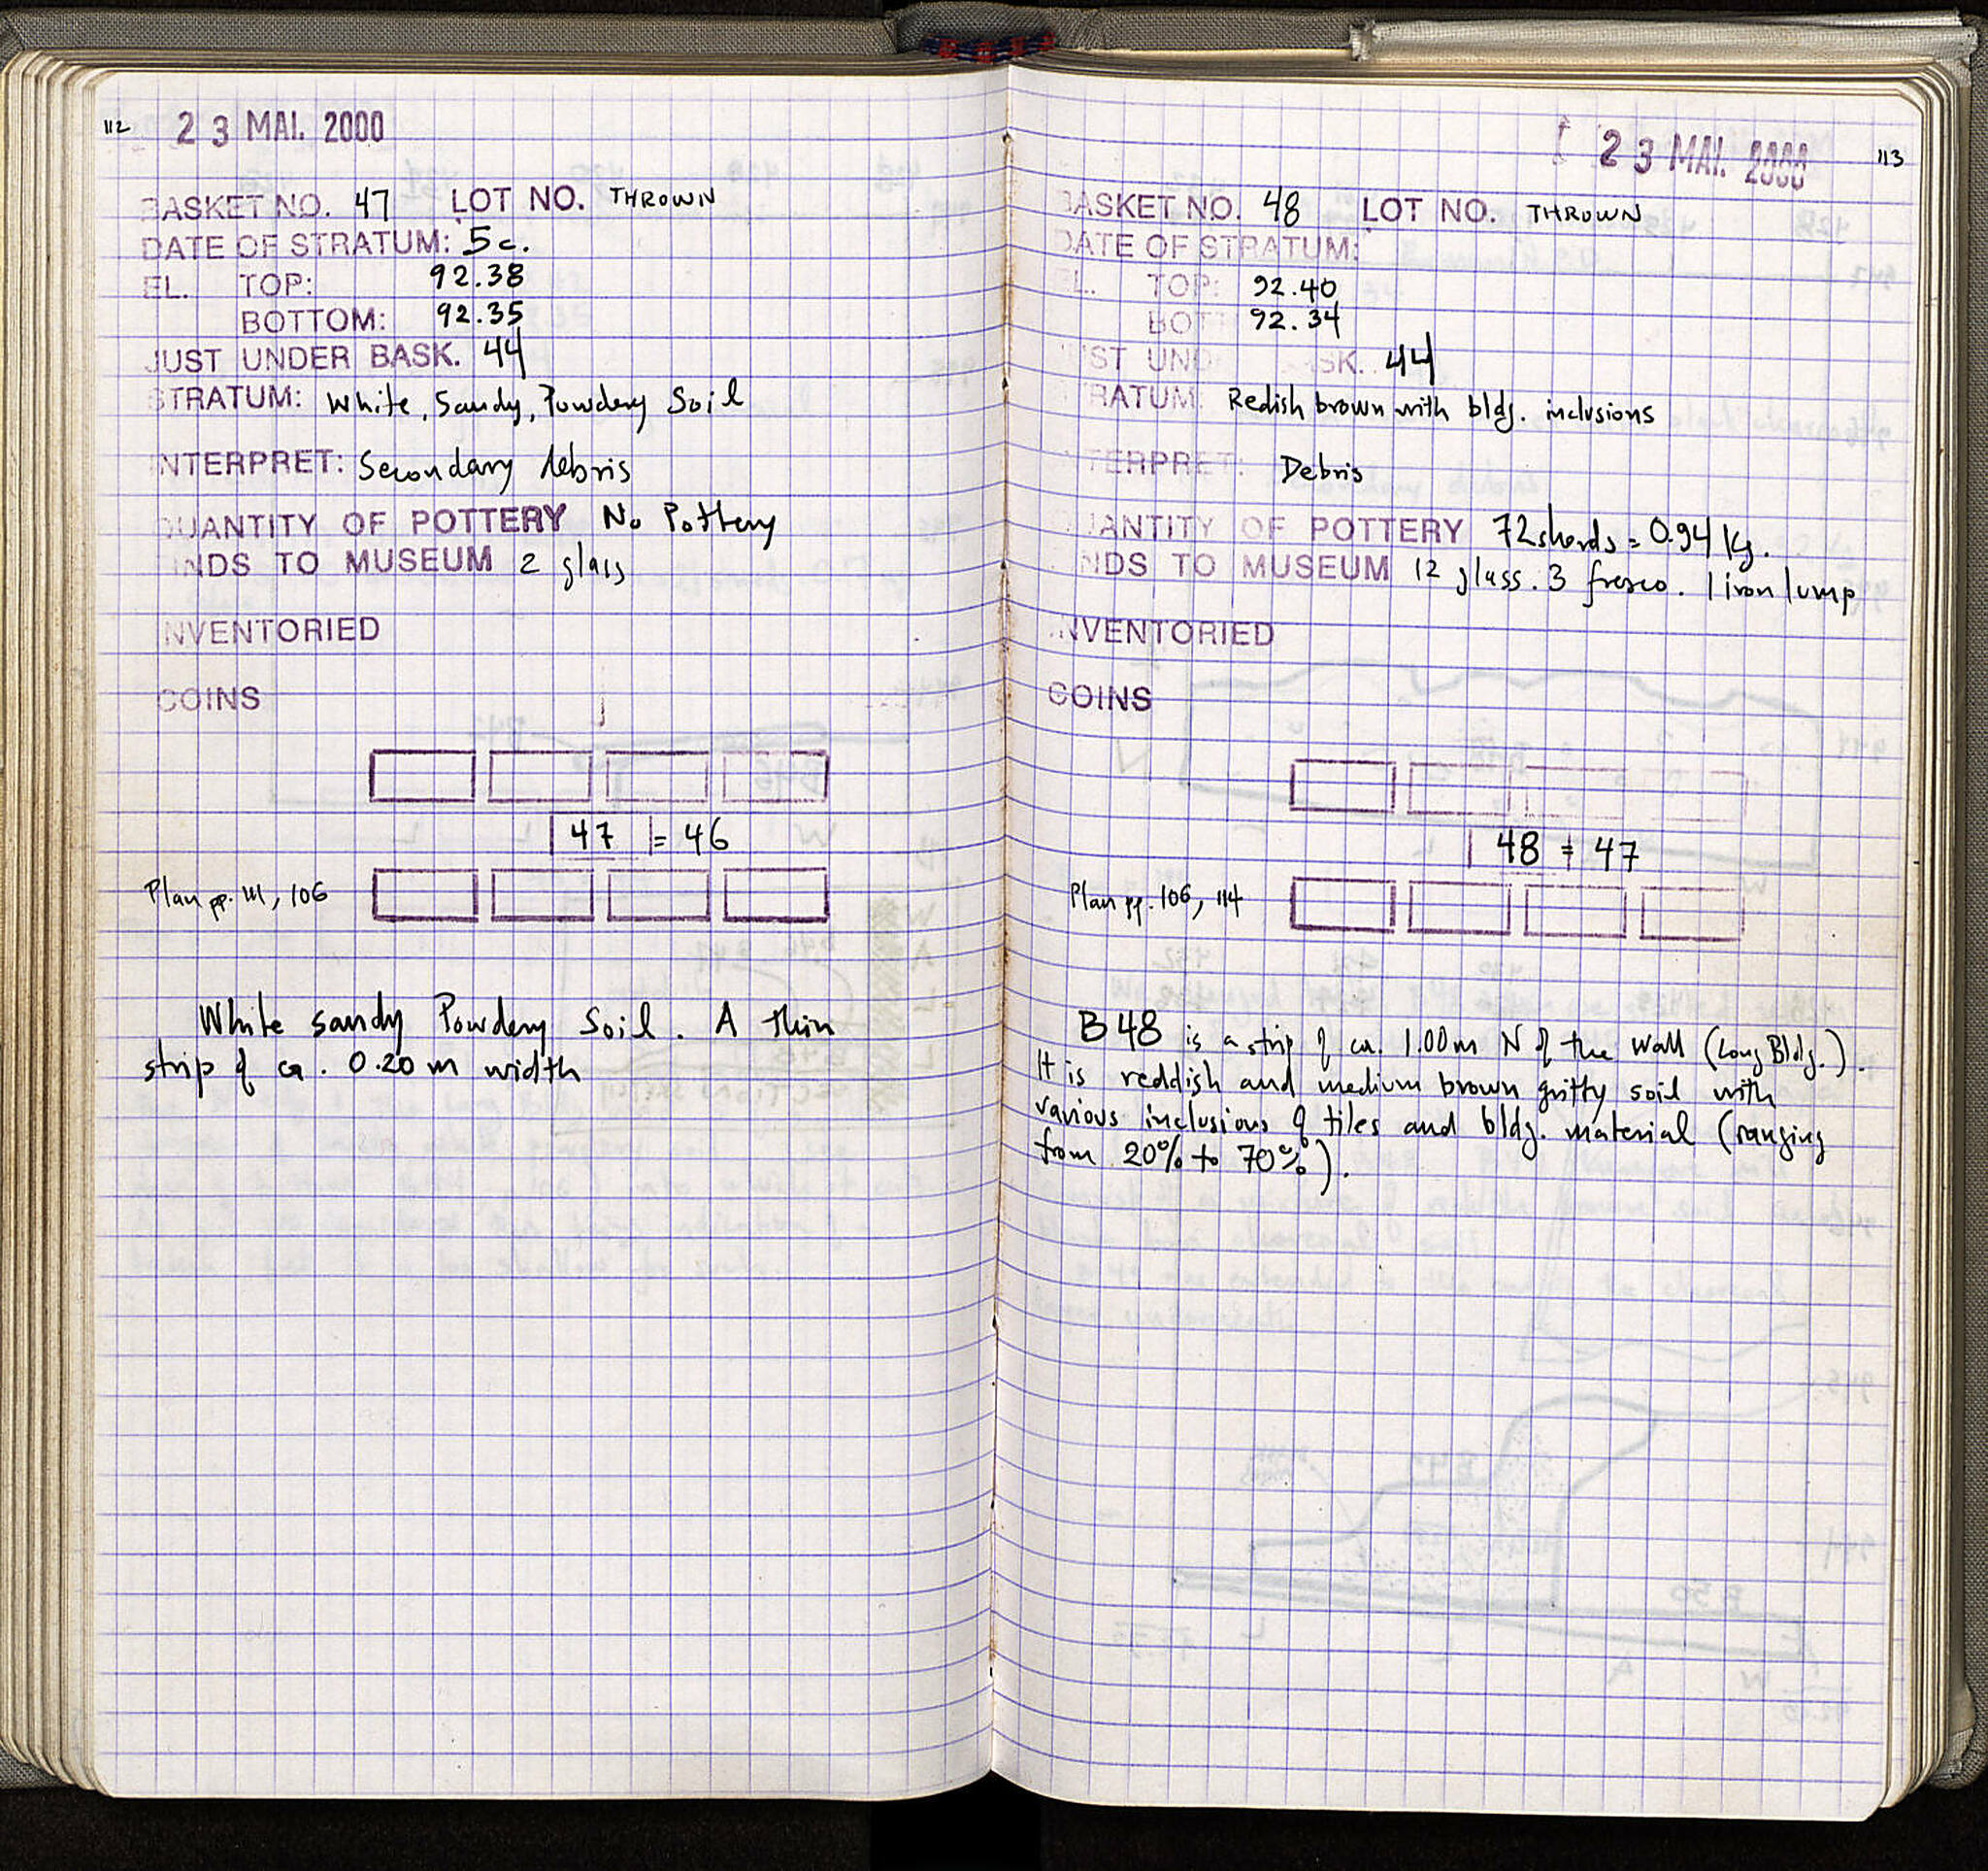 112 23 MAI. 2000
BASKET NO. 47 LOT NO. THROWN
DATE OF STRATUM: 5c.
EL. TOP: 92.38
BOTTOM: 92.35
JUST UNDER BASK. 44
STRATUM: White, Sandy, Powdery Soil
INTERPRET: Secondary debris
QUANTITY OF POTTERY No Pottery
FINDS TO MUSEUM 2 glass
INVENTORIED
COINS
47 = 46
Plan pp. 111, 106
White sandy Powdery Soil. A thin
strip of ca. 0.20 m width
23 MAI. 2000 113
BASKET NO. 48 LOT NO. THROWN
DATE OF STRATUM:
EL. TOP: 92.40
BOT 92.34
JUST UND SK. 44
STRATUM Redish brown with bldg. inclusions
INTERPRET: Debris
QUANTITY OF POTTERY 72 sherds = 0.94 kg.
FINDS TO MUSEUM 12 glass. 3 fresco. 1 iron lump
INVENTORIED
COINS
48 ≠ 47
Plan pp. 106, 114
B 48 is a strip of ca. 1.00 m N of the wall (Long Bldg.).
It is reddish and medium brown gritty soil with
various inclusions of tiles and bldg. material (ranging
from 20% to 70%).